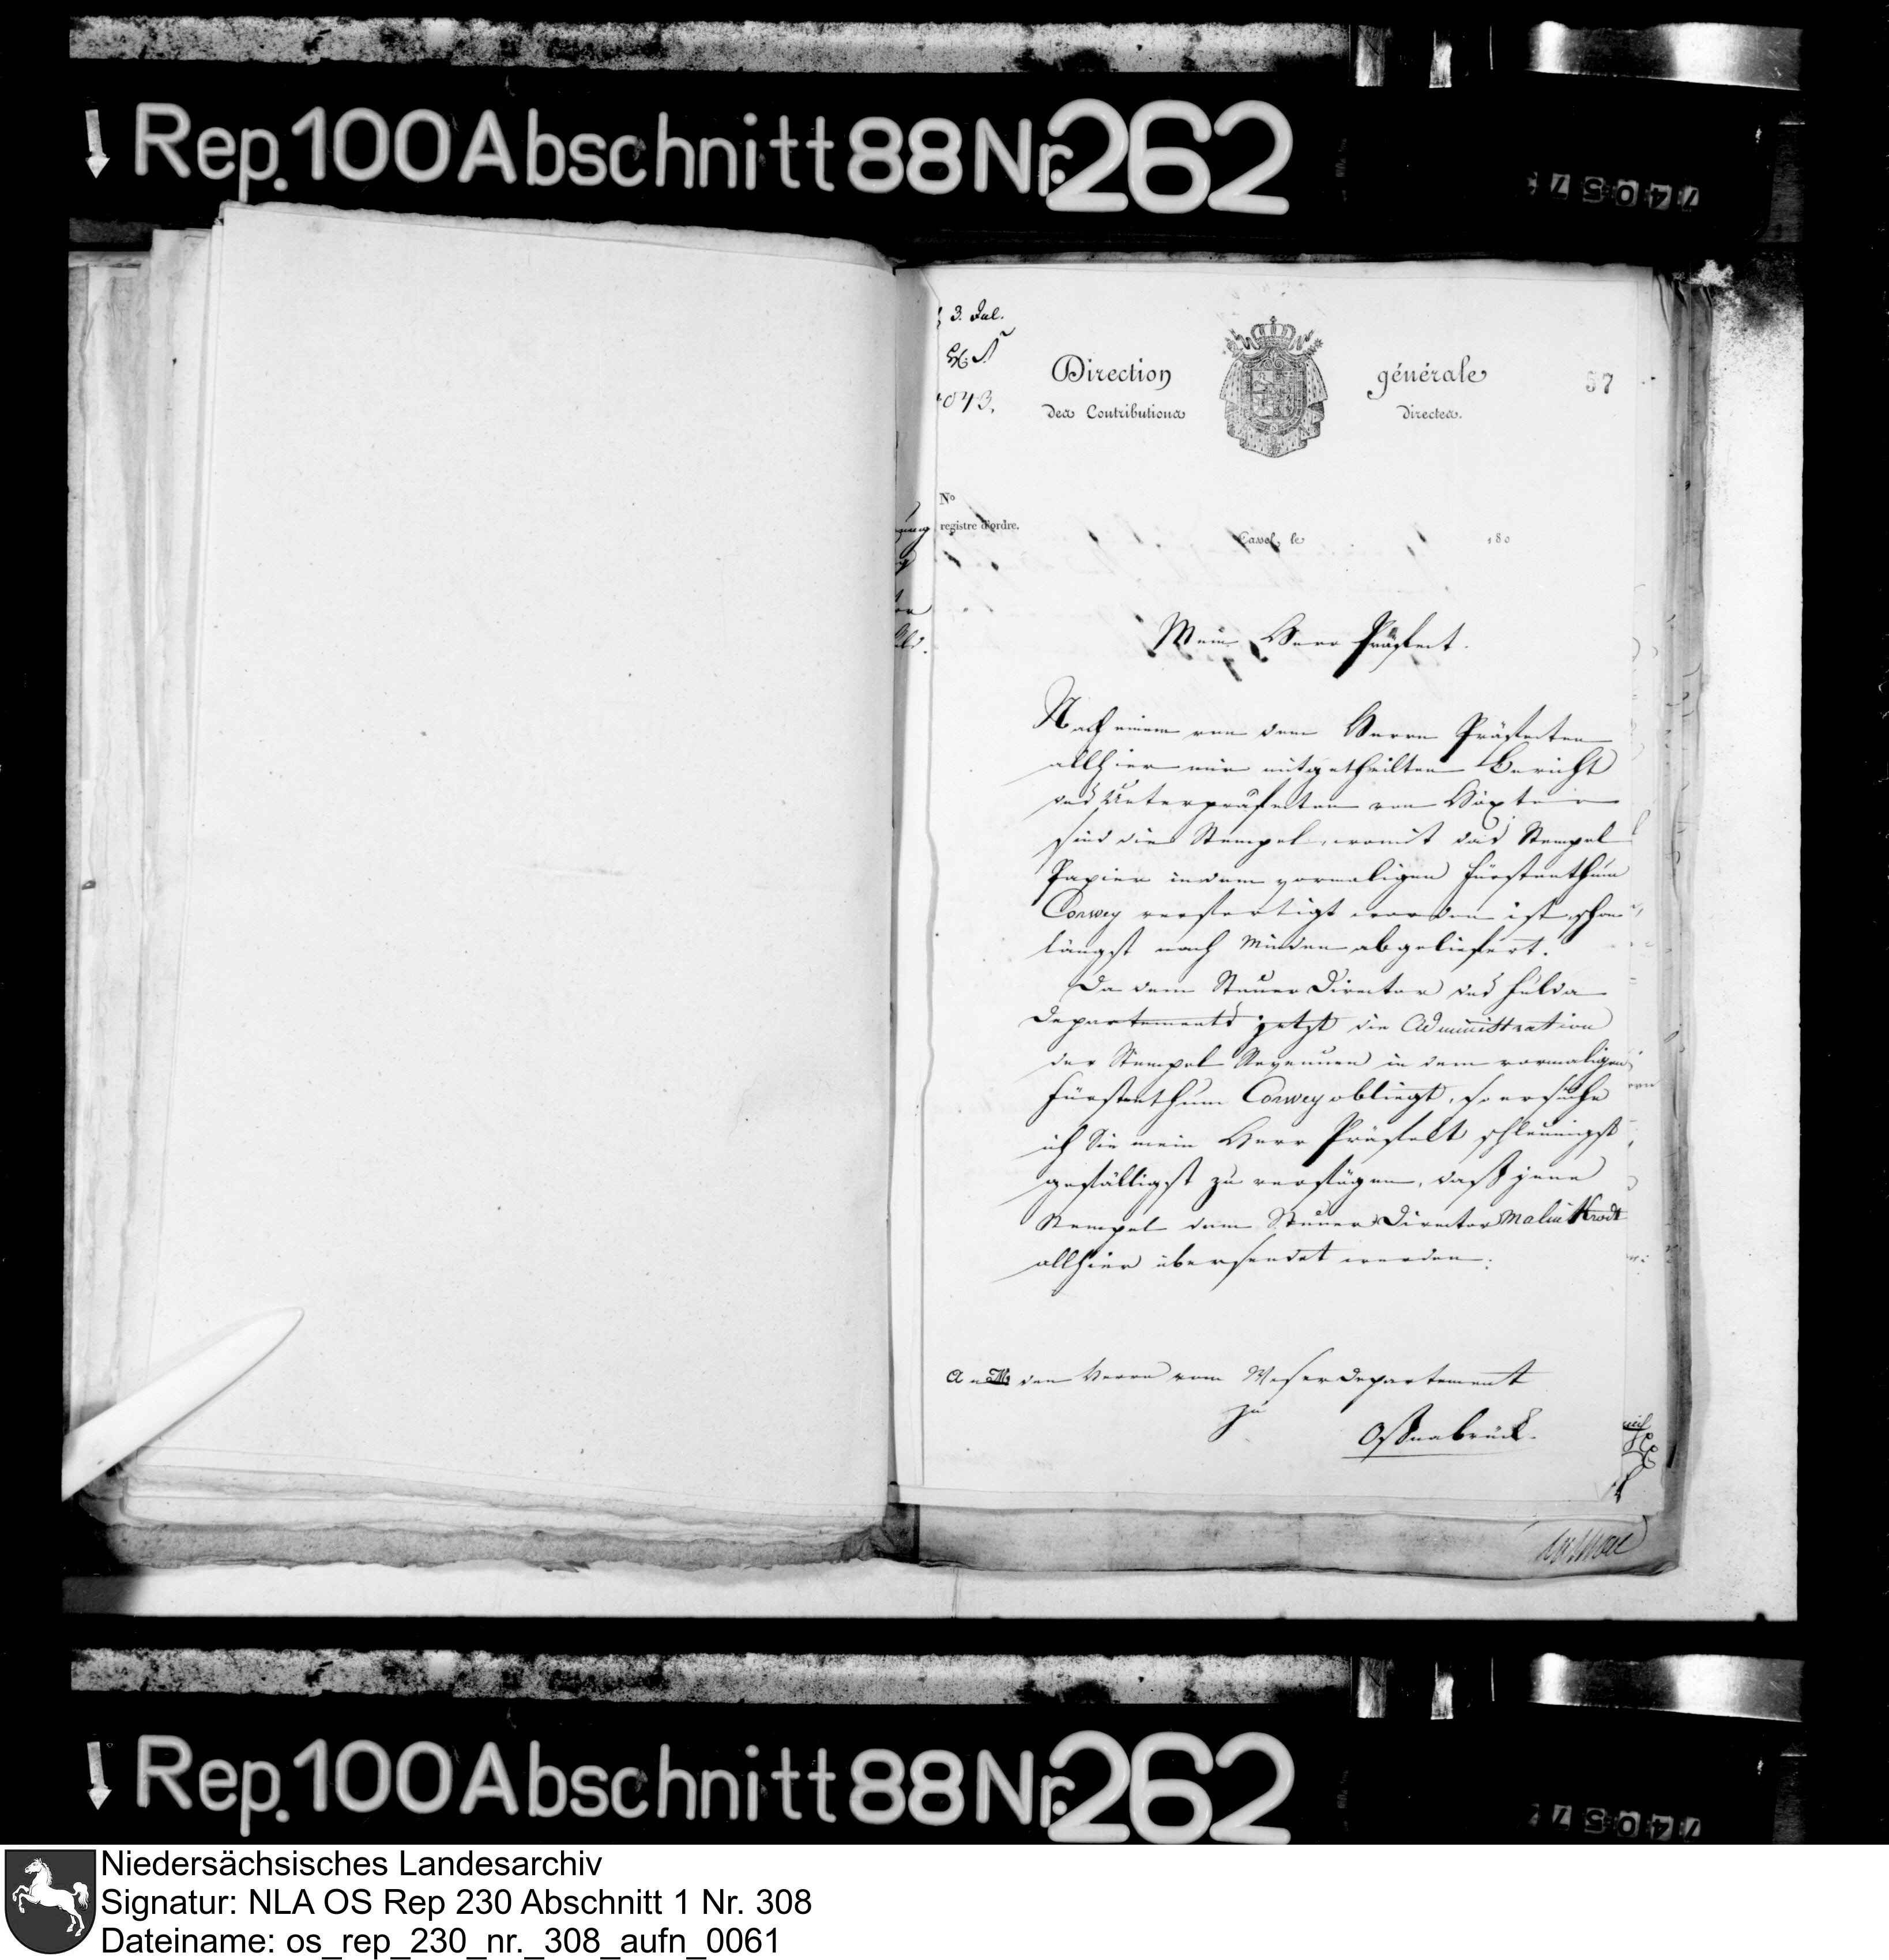 Rep. 100 Abschnitt 88 Nr. 262
3. Jul.
57
Direction générale
des Contributions directes.
No
registre d'ordre.
Cassel, le 180
Mein Herr Präfect.
Nach einem von dem Herrn Präfecten
allhier mir mitgetheilten Bericht
des Unterpräfecten von Höxter
sind die Stempel, womit das Stempel
Papier in dem vormaligen Fürstenthum
Corvey verfertigt worden ist, schon
längst nach Minden abgeliefert.
Da dem Steuer Director des Fulda
Departements jetzt die Administration
der Stempel Revenuen in dem vormaligen
Fürstenthum Corvey obliegt, so ersuche
ich Sie mein Herr Präfekt schleunigst
gefälligst zu verfügen, daß jene
Stempel dem Steuer Director Malinkrodt
allhier übersendet werden.
An den Herrn vom Weserdepartement
zu
Oßnabrück.
Rep. 100 Abschnitt 88 Nr. 262
Niedersächsisches Landesarchiv
Signatur: NLA OS Rep 230 Abschnitt 1 Nr. 308
Dateiname: os_rep_230_nr._308_aufn_0061